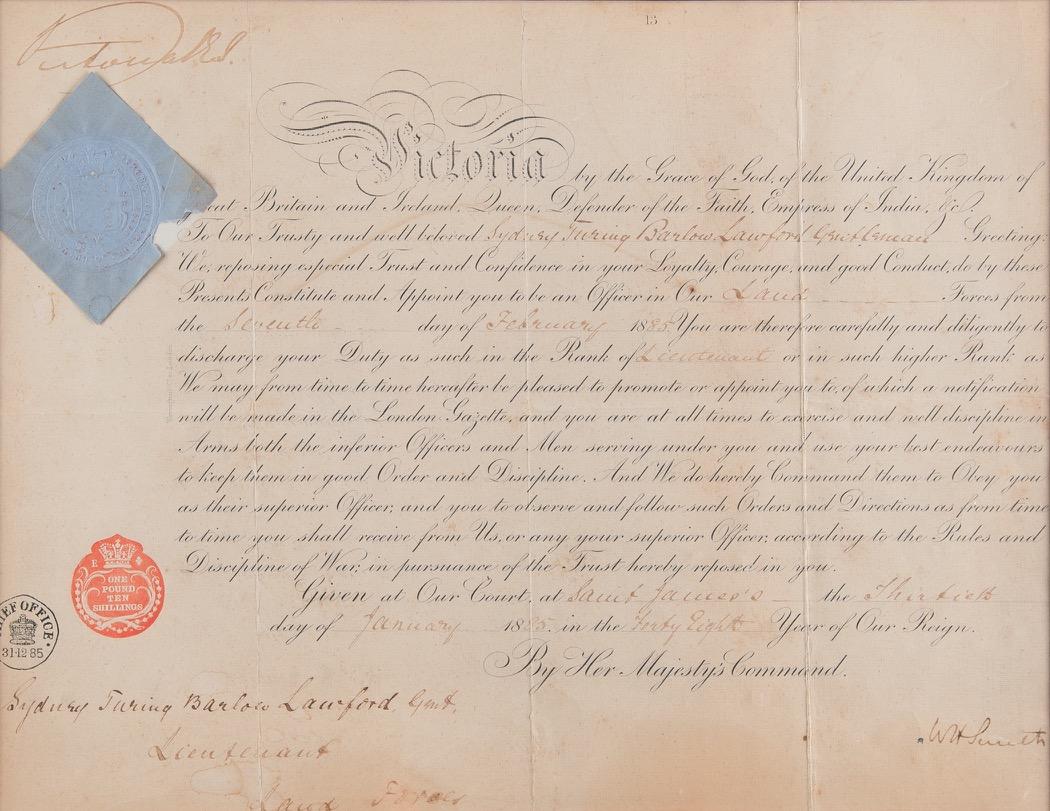 Victoria R.I.
15
Victoria by the Grace of God, of the United Kingdom of
Great Britain and Ireland, Queen, Defender of the Faith, Empress of India, &c.
To Our Trusty and well beloved Sydney Turing Barlow Lawford Gentleman Greeting:
We, reposing especial Trust and Confidence in your Loyalty, Courage, and good Conduct, do by these
Presents Constitute and Appoint you to be an Officer in Our Land Forces from
the Seventh day of February 1885. You are therefore carefully and diligently to
discharge your Duty as such in the Rank of Lieutenant or in such higher Rank as
We may from time to time hereafter be pleased to promote or appoint you to, of which a notification
will be made in the London Gazette, and you are at all times to exercise and well discipline in
Arms both the inferior Officers and Men serving under you and use your best endeavours
to keep them in good Order and Discipline. And We do hereby Command them to Obey you
as their superior Officer, and you to observe and follow such Orders and Directions as from time
to time you shall receive from Us, or any your superior Officer, according to the Rules and
Discipline of War, in pursuance of the Trust hereby reposed in you.
Given at Our Court, at Saint James's the Thirtieth
day of January 1885. in the Forty Eighth Year of Our Reign.
By Her Majesty's Command.
E
ONE
POUND
TEN
SHILLINGS
IEF OFFICE.
31·12 85
Sydney Turing Barlow Lawford, Gent.
Lieutenant
Land Forces
WH Smith